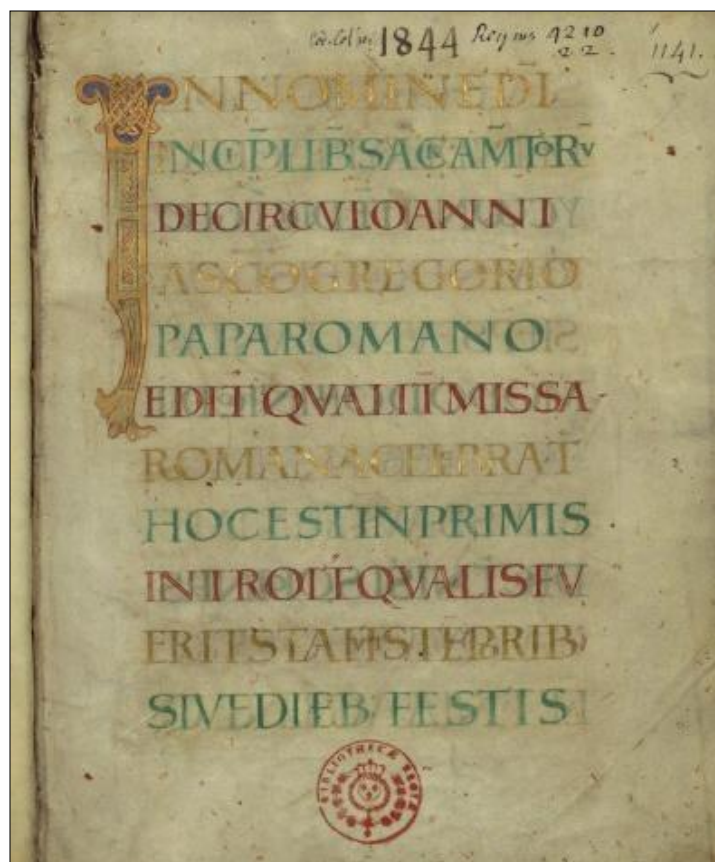 1844 Regius 4210
22.
1141.
INNOMINED̄I
INCP̄LIBSACRAM̄TORV̄
DECIRCVLOANNI
ASC̄OGREGORIO
PAPAROMANO
EDIT̄QVALIT̄MISSA
ROMANACELEBRAT̄
HOCESTINPRIMIS
INTROIT̄QVALISFV
ERIT
SIVEDIEB;FESTIS
BIBLIOTHECÆ REGIÆ